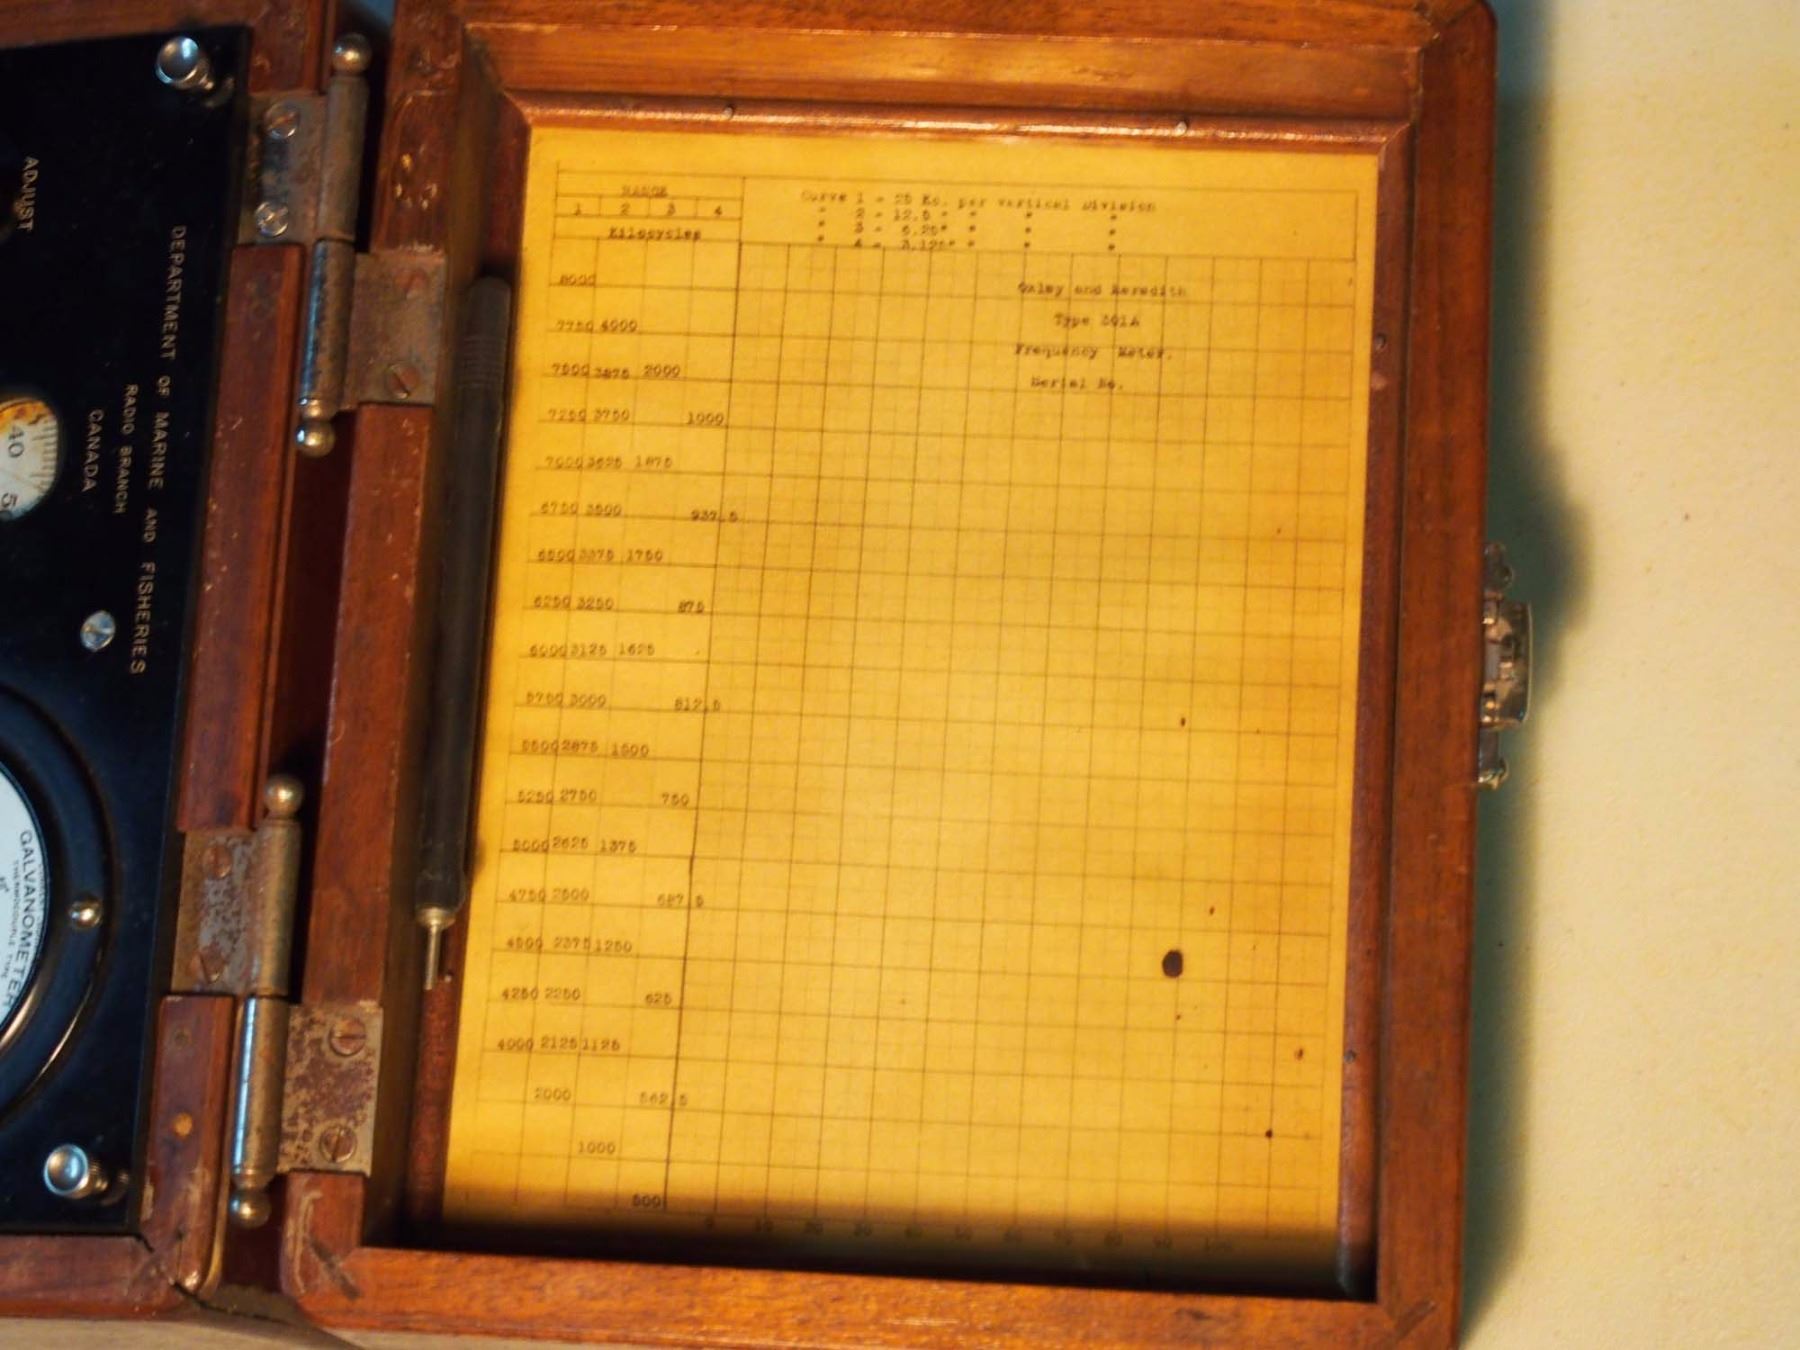 ADJUST
DEPARTMENT OF MARINE AND FISHERIES
RADIO BRANCH
CANADA
40
GALVANOMETER
THERMOCOUPLE TYPE
RANGE
1 2 3 4
Kilocycles
Curve 1 - 25 Kc. per vertical Division
" 2 - 12.5 " " " "
" 3 - 6.25" " " "
" 4 - 3.125" " " "
Oxley and Meredith
Type 301A
Frequency Meter.
Serial No.
8000
7750 4000
7500 3875 2000
7250 3750 1000
7000 3625 1875
6750 3500 937.5
6500 3375 1750
6250 3250 875
6000 3125 1625
5750 3000 812.5
5500 2875 1500
5250 2750 750
5000 2625 1375
4750 2500 687.5
4500 2375 1250
4250 2250 625
4000 2125 1125
2000 562.5
1000
500
0 10 20 30 40 50 60 70 80 90 100